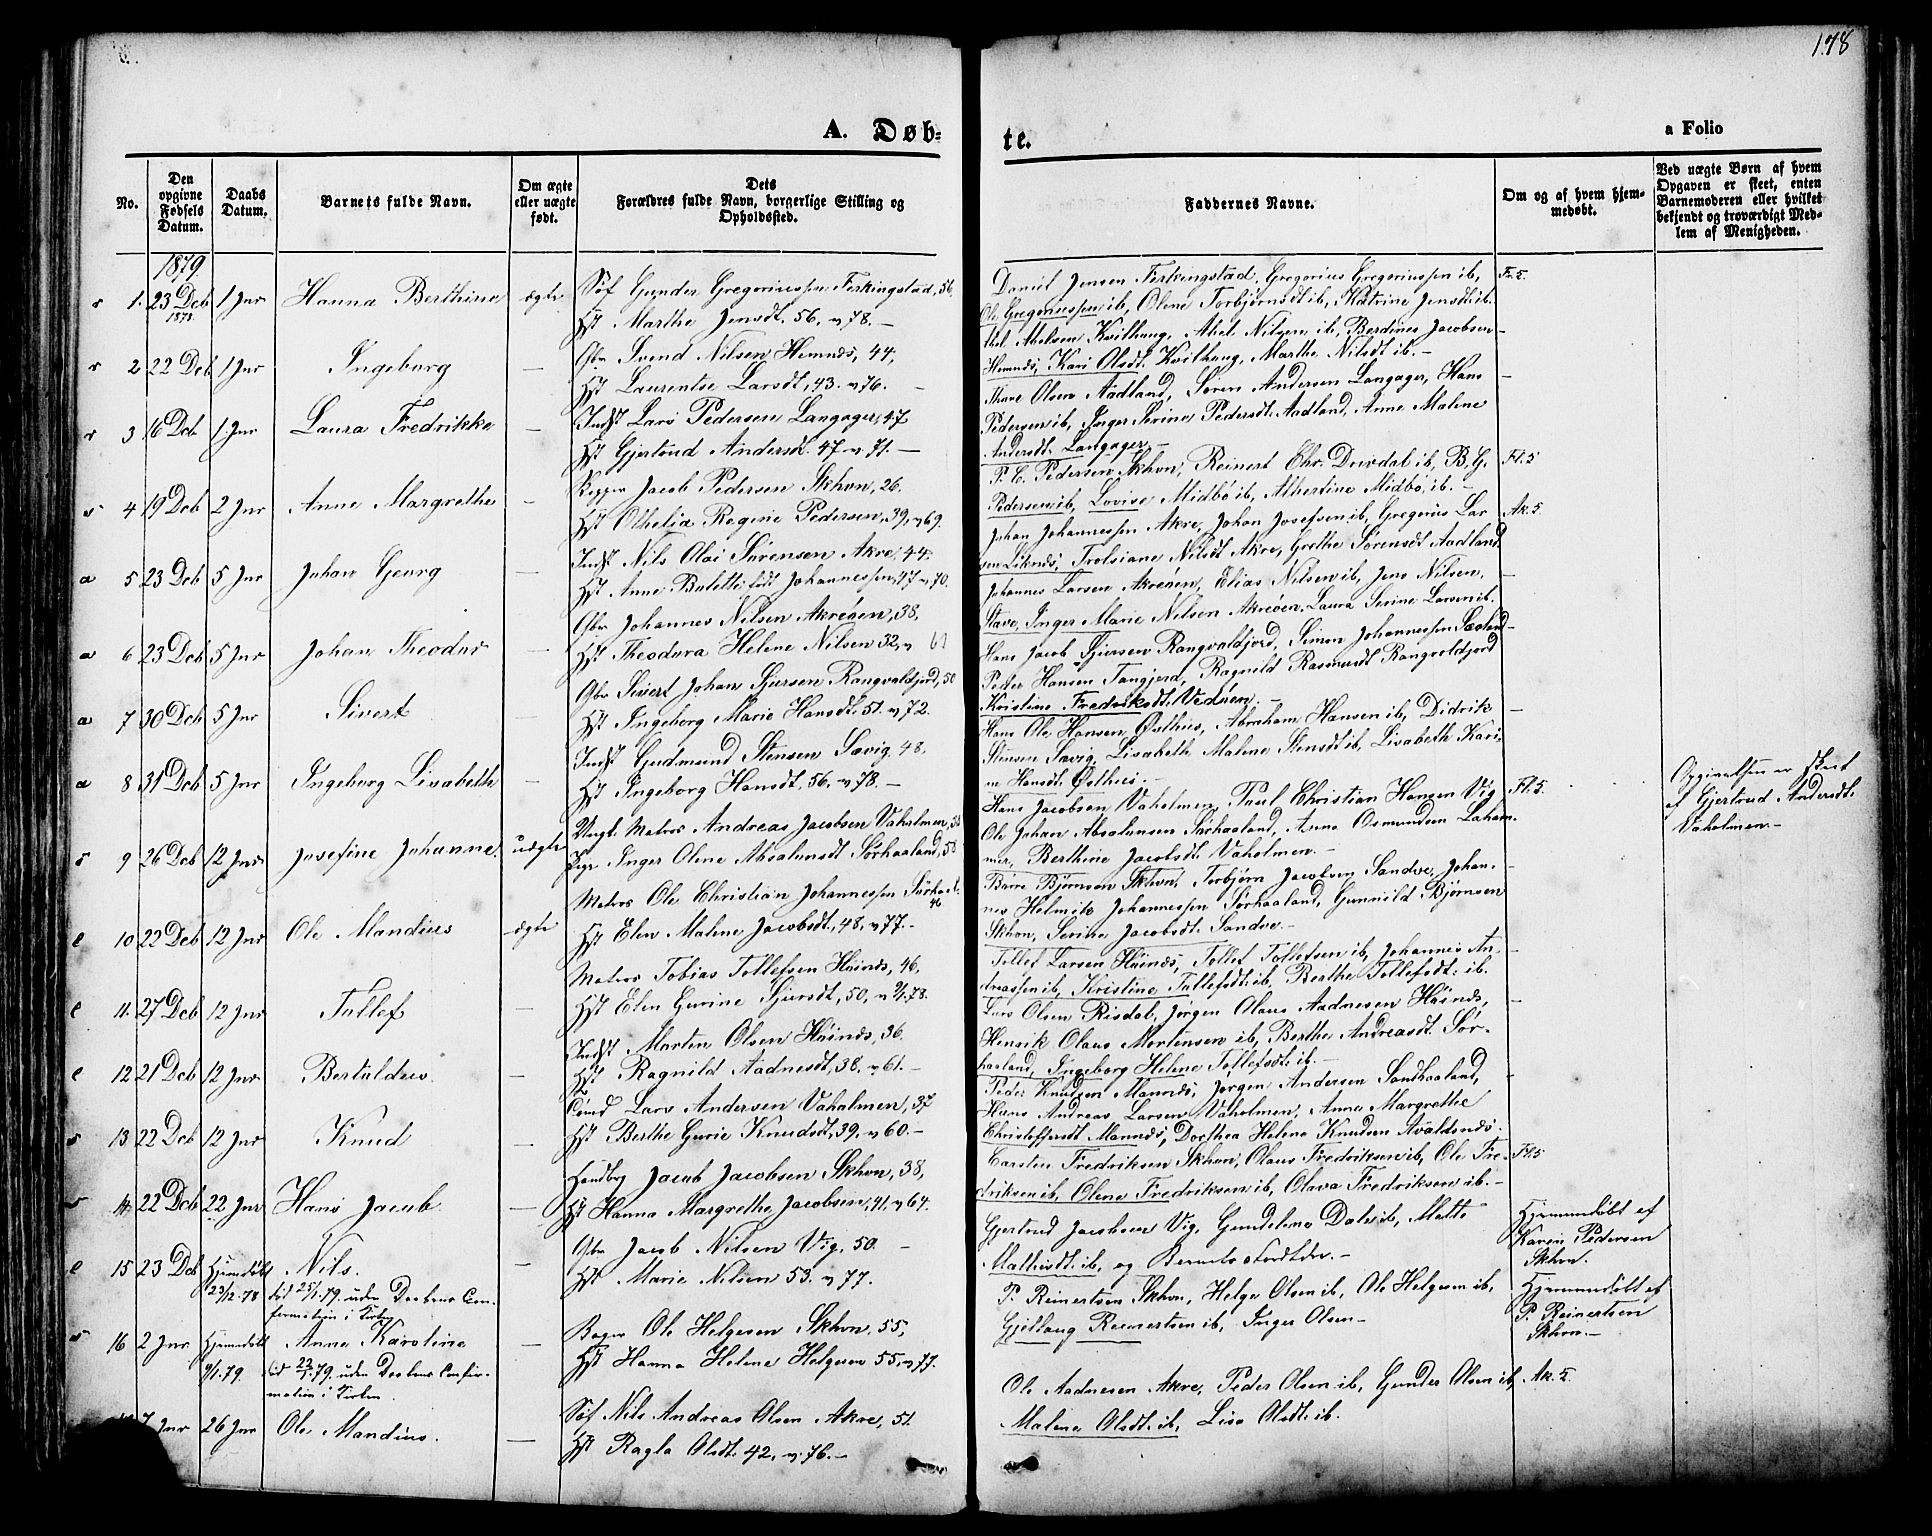 178
A. Døb-
te.
a Folio
No.
Den opgivne Fødsels Datum.
Daabs Datum.
Barnets fulde Navn.
Om ægte eller uægte født.
Dets Forældres fulde Navn, borgerlige Stilling og Opholdssted.
Faddernes Navne.
Om og af hvem hjemmedøbt.
Ved uægte Børn af hvem Opgaven er skeet, enten Barnemoderen eller hvilket bekjendt og troværdigt Medlem af Menigheden.
1879.
r 1. 23 Deb 1878. 1 Jnr Hanna Berthine ægte
Søf Gunder Gregoriussen Ferkingstad, 56,
Hst Marthe Jensdt. 56, v 78. —
Daniel Jensen Ferkingstad, Gregorius Gregoriussen ib,
Ole Gregoriussen ib, Olene Torbjørnsdt ib, Katrine Jensdt ib.
r 2 22 Deb 1 Jnr Ingeborg —
Gbr Svend Nilsen Hemnæs, 44,
Hst Laurentse Larsdt, 43. v 76. —
Abelsen Kvilhaug, Abel Nilsen ib, Berdines Jacobsen
Hemnæs, Kari Olsdt. Kvilhaug, Marthe Nilsdt ib. —
r 3 16 Deb 1 Jnr Laura Fredrikke —
Indst Lars Pedersen Langager, 47
Hst Gjertrud Andersdt. 47 v 71. —
Thore Olsen Aadland, Søren Andersen Langager, Hans
Pedersen ib, Inger Serine Pedersdt. Aadland, Anne Malene
Andersdt. Langager. —
s 4 19 Deb 2 Jnr Anne Margrethe —
Jacob Pedersen Skhvn, 26.
Hst Othelia Regine Pedersen, 39, v 69.
P. C. Pedersen Skhvn, Reinert Chr. Drivdal ib, B. G. Fl. 5
Pedersen ib, Lovise Midbø ib, Albertine Midbø, ib. —
a 5 23 Deb 5 Jnr Johan Georg —
Indst Nils Olai Sørensen Akre, 44.
Hst Anne født Johannessen, 47 v 70.
Johan Johannessen Akre, Johan Josefsen ib, Gregorius Lar Ak. 5.
sen Liknæs, Nilsdt Akre, Grethe Sørensdt Aadland.
a 6 23 Deb 5 Jnr Johan Theodor —
Gbr Johannes Nilsen Akreøen, 38,
Hst Theodora Helene Nilsen 32, v
Johannes Larsen Akreøen, Elias Nilsen ib, Jens Nilsen.
Stave, Inger Marie Nilsen Akreøen, Laura Serine Larsen ib.
a 7 30 Deb 5 Jnr Sivert —
Gbr Sivert Johan Sjursen Rangvaldjord, 50
Hst Ingeborg Marie Hansdt. 51. v 72.
Hans Jacob Sjursen Rangvaldjord, Simon Johannessen Sæland
Peder Hansen Tangjerd, Ragnild Rasmusdt Rangvoldjord
Kristine Fredriksdt. Vedøen. —
a 8 31 Deb 5 Jnr Ingeborg Lisabeth —
Indst Gudmund Stensen Sævig, 48,
Hst Ingeborg Hansdt, 56, v 78. —
Hans Ole Hansen Østhus, Abraham Hansen ib, Didrik
Stensen Sævig, Lisabeth Malene Stensdt ib, Lisabeth Kari-
ne Hansdt. Østhus. —
s 9 26 Deb 12 Jnr Josefine Johanne. uægte
Ungk. Matros Andreas Jacobsen Vaholmen, 58
Pige Inger Olene Absalonsdt Sørhaaland, 58
Hans Jacobsen Vaholmen, Paul Christian Hansen Vig Fl. 5.
Ole Johan Absalonsen Sørhaaland, Asmundsen Laham-
mer, Berthine Jacobsdt. Vaholmen. —
Opgivelsen er skeet
af Gjertrud Andersdt.
Vaholmen. —
e 10 22 Deb 12 Jnr Ole Mandius ægte
Matros Ole Christian Johannessen Sørhaal. 46
Hst Elen Malene Jacobsdt., 48, v 77. —
Børre Bjørnsen Skhvn, Torbjørn Jacobsen Sandve, Johan-
nes Helmik Johannessen Sørhaaland, Gunnild Bjørnsen
Skhvn, Serine Jacobsdt. Sandve —
e 11. 27 Deb 12 Jnr Tollef —
Matros Tobias Tollefsen Høinæs, 46,
Hst Elen Gurine Sjursdt, 50, v 78.
Tollef Larsen Høinæs, Tollef Tollefsen ib, Johannes An-
dreassen ib, Kristine Tollefsdt. ib, Berthe Tollefsdt. ib.
e 12 21 Deb 12 Jnr Bertuldus. —
Indst Morten Olsen Høinæs, 36.
Hst Ragnild Aadnesdt, 38. v 61. —
Lars Olsen Risdal, Jørgen Olaus Aadnesen Høinæs,
Henrik Olaus Mortensen ib, Berthe Andreasdt. Sør-
haaland, Ingeborg Helene Tollefsdt. ib. —
s 13 22 Deb 12 Jnr Knud —
Lars Andersen Vaholmen, 37
Hst Berthe Gurie Knudsdt, 39, v 60. —
Peder Knudsen Mannæs, Jørgen Andersen Sandhaaland,
Hans Andreas Larsen Vaholmen, Anne Margrethe
Christoffersdt Mannæs, Dorthea Helene Knudsen Avaldsnæs.
s 14 22 Deb 22 Jnr Hans Jacob —
Handbg Jacob Jacobsen Skhvn, 38,
Hst Hanna Margrethe Jacobsen, 41, v 64.
Carsten Fredriksen Skhvn, Olaus Fredriksen ib, Ole Fre- Fl. 5
driksen ib, Olene Fredriksen ib, Olava Fredriksen ib. —
e 15 23 Deb Hjemmdøbt 23/12. 78 Nils. —
død 25/1. 79. uden Daabens Con-
fermation i Kirken
Gbr Jacob Nilsen Vig, 50. —
Hst Marie Nilsen 53. v 77.
Gjertrud Jacobsen Vig, Gundelena Dale ib, Malte
Mathisdt. ib, og Barnets Forældre. —
Hjemmedøbt af
Karen Pedersen
Skhvn.
s 16 2 Jnr Hjemmdøbt 9/1. 79. Anne Karoline —
død 22/1. 79. uden Daabens Confir-
mation i Kirken.
Bager Ole Helgesen Skhvn, 55,
Hst Hanna Helene Helgesen 55, v 77.
P. Reinertsen Skhvn, Helge Olsen ib, Ole Helgesen ib,
Gjellaug Reinertsen ib, Inger Olsen —
Hjemmedøbt af
P. Reinertsen
Skhvn. —
7 Jnr 26 Jnr Ole Mandius. —
Søf Nils Andreas Olsen Akre, 51.
Hst Ragla Olsdt. 42, v 76. —
Ole Aadnesen Akre, Peder Olsen ib, Gunder Olsen ib, Ak. 5.
Malene Olsdt. ib, Lisa Olsdt. ib.